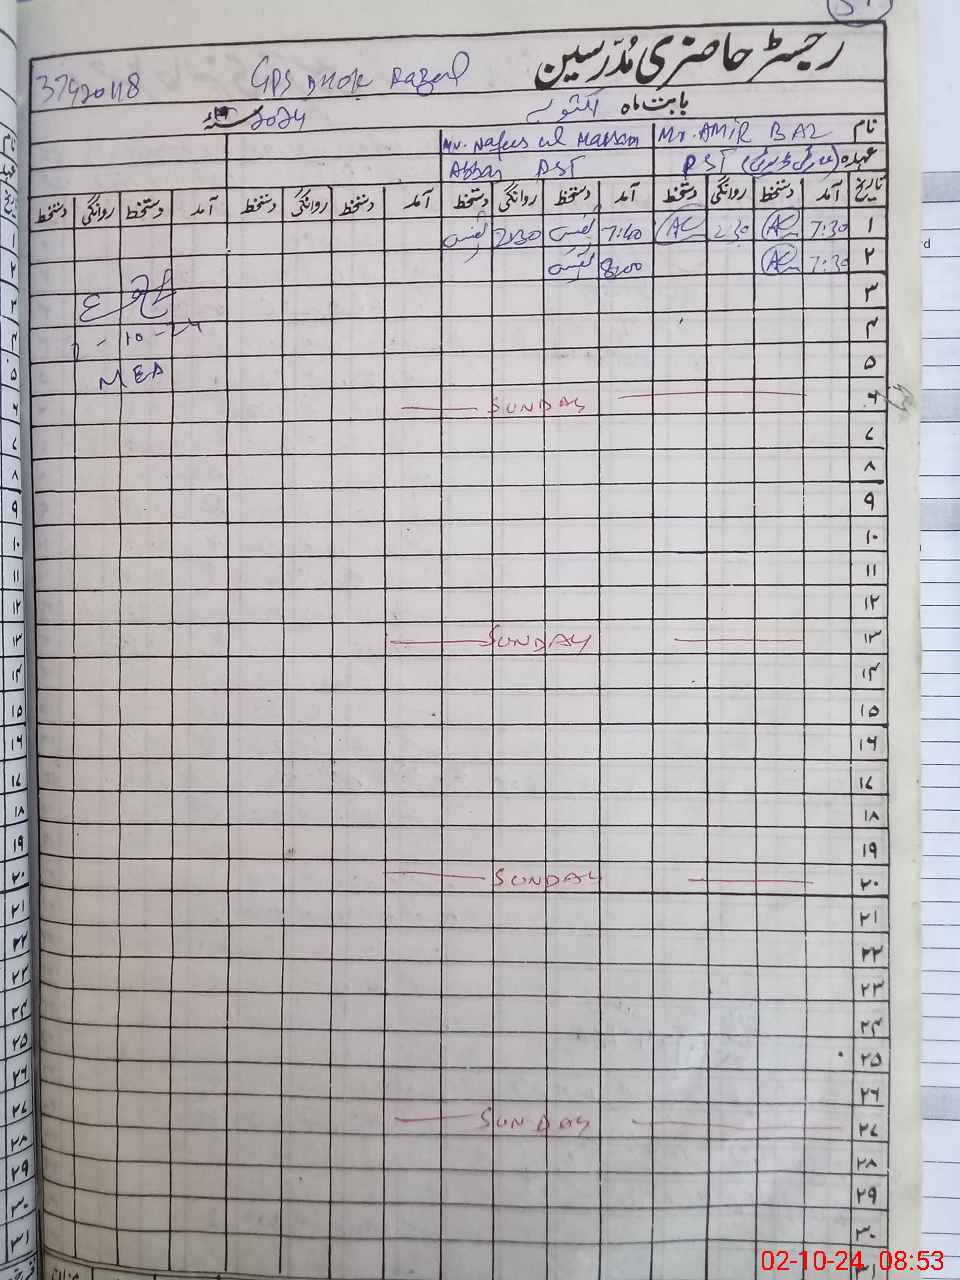 رجسٹر حاضری مُدرسین
37420118 GPS DHOK
بابت ماہ اکتوبر سنہ 2024
نام Mr. AMIR BAZ Mr. Nafees ul Hassan
عہدہ PST Abbas PST
تاریخ آمد دستخط روانگی دستخط آمد دستخط روانگی دستخط آمد دستخط روانگی دستخط آمد دستخط روانگی دستخط
۱ 7:30 2:30 7:40 نفیس 2:30 نفیس
۲ 7:30 8:00 نفیس
۳
۴
۵
۶ SUNDAY
۷
۸
۹
۱۰
۱۱
۱۲
۱۳ SUNDAY
۱۴
۱۵
۱۶
۱۷
۱۸
۱۹
۲۰ SUNDAY
۲۱
۲۲
۲۳
۲۴
۲۵
۲۶
۲۷ SUNDAY
۲۸
۲۹
۳۰
۳۱
MEA
02-10-24, 08:53